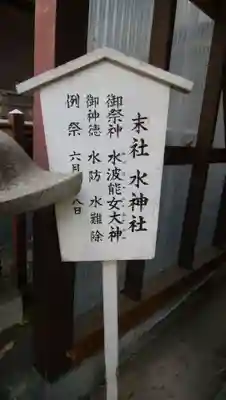 末社 水神社
御祭神 水波能女大神
御神徳 水防 水難除
例祭 六月 八日